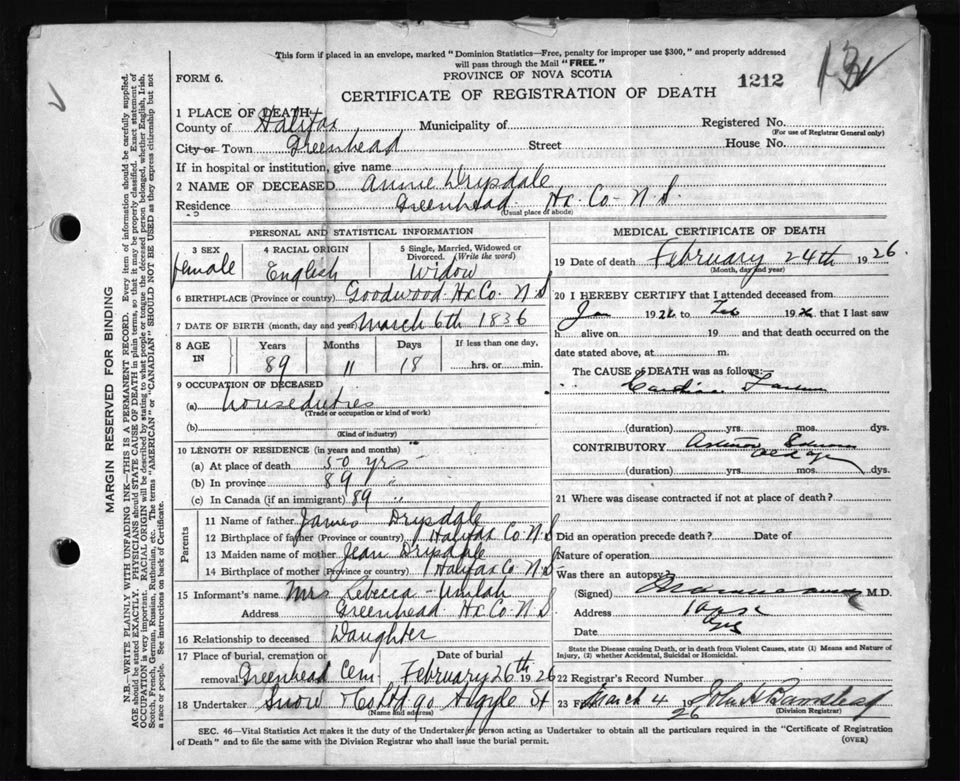 This form if placed in an envelope, marked "Dominion Statistics—Free, penalty for improper use $300," and properly addressed
will pass through the Mail "FREE."
FORM 6.
PROVINCE OF NOVA SCOTIA
1212
CERTIFICATE OF REGISTRATION OF DEATH
1 PLACE OF DEATH
County of Halifax Municipality of Registered No.
(For use of Registrar General only)
City or Town Greenhead Street House No.
If in hospital or institution, give name
2 NAME OF DECEASED Annie Drysdale
Residence Greenhead Hx. Co. N.S.
(Usual place of abode)
PERSONAL AND STATISTICAL INFORMATION
3 SEX 4 RACIAL ORIGIN 5 Single, Married, Widowed or
Divorced. (Write the word)
female English Widow
6 BIRTHPLACE (Province or country) Goodwood Hx Co. N.S
7 DATE OF BIRTH (month, day and year) March 6th 1836
8 AGE IN Years Months Days If less than one day,
89 11 18 hrs. or min.
9 OCCUPATION OF DECEASED
(a) houseduties
(Trade or occupation or kind of work)
(b)
(Kind of industry)
10 LENGTH OF RESIDENCE (in years and months)
(a) At place of death 50 yrs
(b) In province 89 "
(c) In Canada (if an immigrant) 89 "
Parents
11 Name of father James Drysdale
12 Birthplace of father (Province or country) Halifax Co. N.S
13 Maiden name of mother Jean Drysdale
14 Birthplace of mother (Province or country) Halifax Co N.S
15 Informant's name Mrs Rebecca Umlah
Address Greenhead Hx Co N.S
16 Relationship to deceased Daughter
17 Place of burial, cremation or Date of burial
removal Greenhead Cem. February 26th 1926
18 Undertaker Snow & Co Ltd 90 Argyle St
(Name and address)
MEDICAL CERTIFICATE OF DEATH
19 Date of death February 24th 1926.
(Month, day and year)
20 I HEREBY CERTIFY that I attended deceased from
Jan 1926 to Feb 1926 that I last saw
h alive on 19 and that death occurred on
date stated above, at m.
The CAUSE OF DEATH was as follows:
Cardiac
(duration) yrs. mos. dys.
CONTRIBUTORY
old age
(duration) yrs. mos. dys.
21 Where was disease contracted if not at place of death?
Did an operation precede death? Date of
Nature of operation
Was there an autopsy?
(Signed) M.D.
Address
Date
State the Disease causing Death, or in death from Violent Causes, state (1) Means and Nature of
Injury, (2) whether Accidental, Suicidal or Homicidal.
22 Registrar's Record Number
23 Filed March 4 1926 John H Barnstead
(Division Registrar)
SEC. 46—Vital Statistics Act makes it the duty of the Undertaker or person acting as Undertaker to obtain all the particulars required in the "Certificate of Registration
of Death" and to file the same with the Division Registrar who shall issue the burial permit.
(OVER)
MARGIN RESERVED FOR BINDING
N.B.—WRITE PLAINLY WITH UNFADING INK—THIS IS A PERMANENT RECORD. Every item of information should be carefully supplied.
AGE should be stated EXACTLY. PHYSICIANS should STATE CAUSE OF DEATH in plain terms, so that it may be properly classified. Exact statement of
OCCUPATION is very important. RACIAL ORIGIN will be described by stating to what people or tongue the deceased person belonged, whether English, Irish,
Scotch, French, German, Russian, Ruthenian, etc. The terms "AMERICAN" or "CANADIAN" SHOULD NOT BE USED as they express citizenship but not
a race or people. See instructions on back of Certificate.